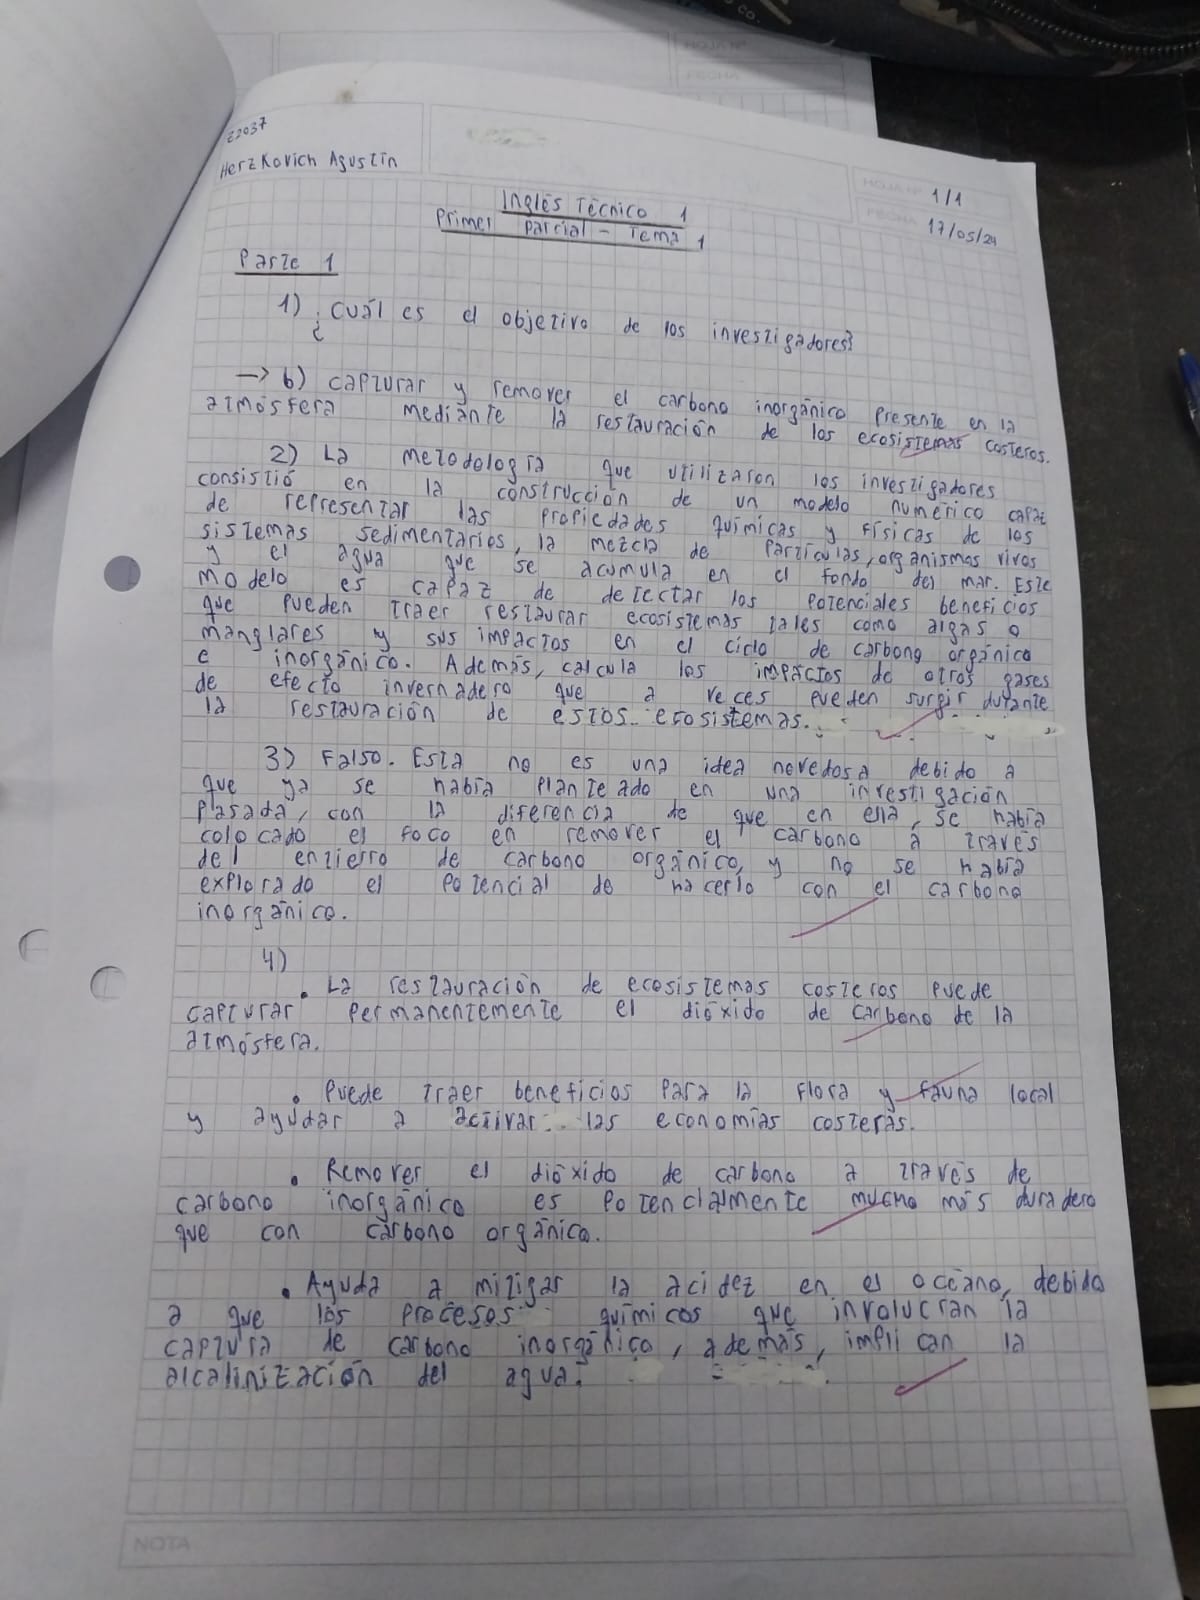 HOJA Nº
FECHA
22037
Herzkovich Agustín
HOJA Nº 1/1
FECHA 17/05/24
Inglés Técnico 1
Primer parcial - Tema 1
Parte 1
1) ¿Cuál es el objetivo de los investigadores?
→ b) capturar y remover el carbono inorgánico presente en la
atmósfera mediante la restauración de los ecosistemas costeros.
2) La metodología que utilizaron los investigadores
consistió en la construcción de un modelo numérico capaz
de representar las propiedades químicas y físicas de los
sistemas sedimentarios, la mezcla de partículas, organismos vivos
y el agua que se acumula en el fondo del mar. Este
modelo es capaz de detectar los potenciales beneficios
que pueden traer restaurar ecosistemas tales como algas o
manglares y sus impactos en el ciclo de carbono orgánico
e inorgánico. Además, calcula los impactos de otros gases
de efecto invernadero que a veces pueden surgir durante
la restauración de estos ecosistemas.
3) Falso. Esta no es una idea novedosa debido a
que ya se había planteado en una investigación
pasada, con la diferencia de que en ella, se había
colocado el foco en remover el carbono a través
del entierro de carbono orgánico, y no se había
explorado el potencial de hacerlo con el carbono
inorgánico.
4)
• La restauración de ecosistemas costeros puede
capturar permanentemente el dióxido de carbono de la
atmósfera.
• Puede traer beneficios para la flora y fauna local
y ayudar a activar las economías costeras.
• Remover el dióxido de carbono a través de
carbono inorgánico es potencialmente mucho más duradero
que con carbono orgánico.
• Ayuda a mitigar la acidez en el océano, debido
a que los procesos químicos que involucran la
captura de carbono inorgánico, además, implican la
alcalinización del agua.
NOTA